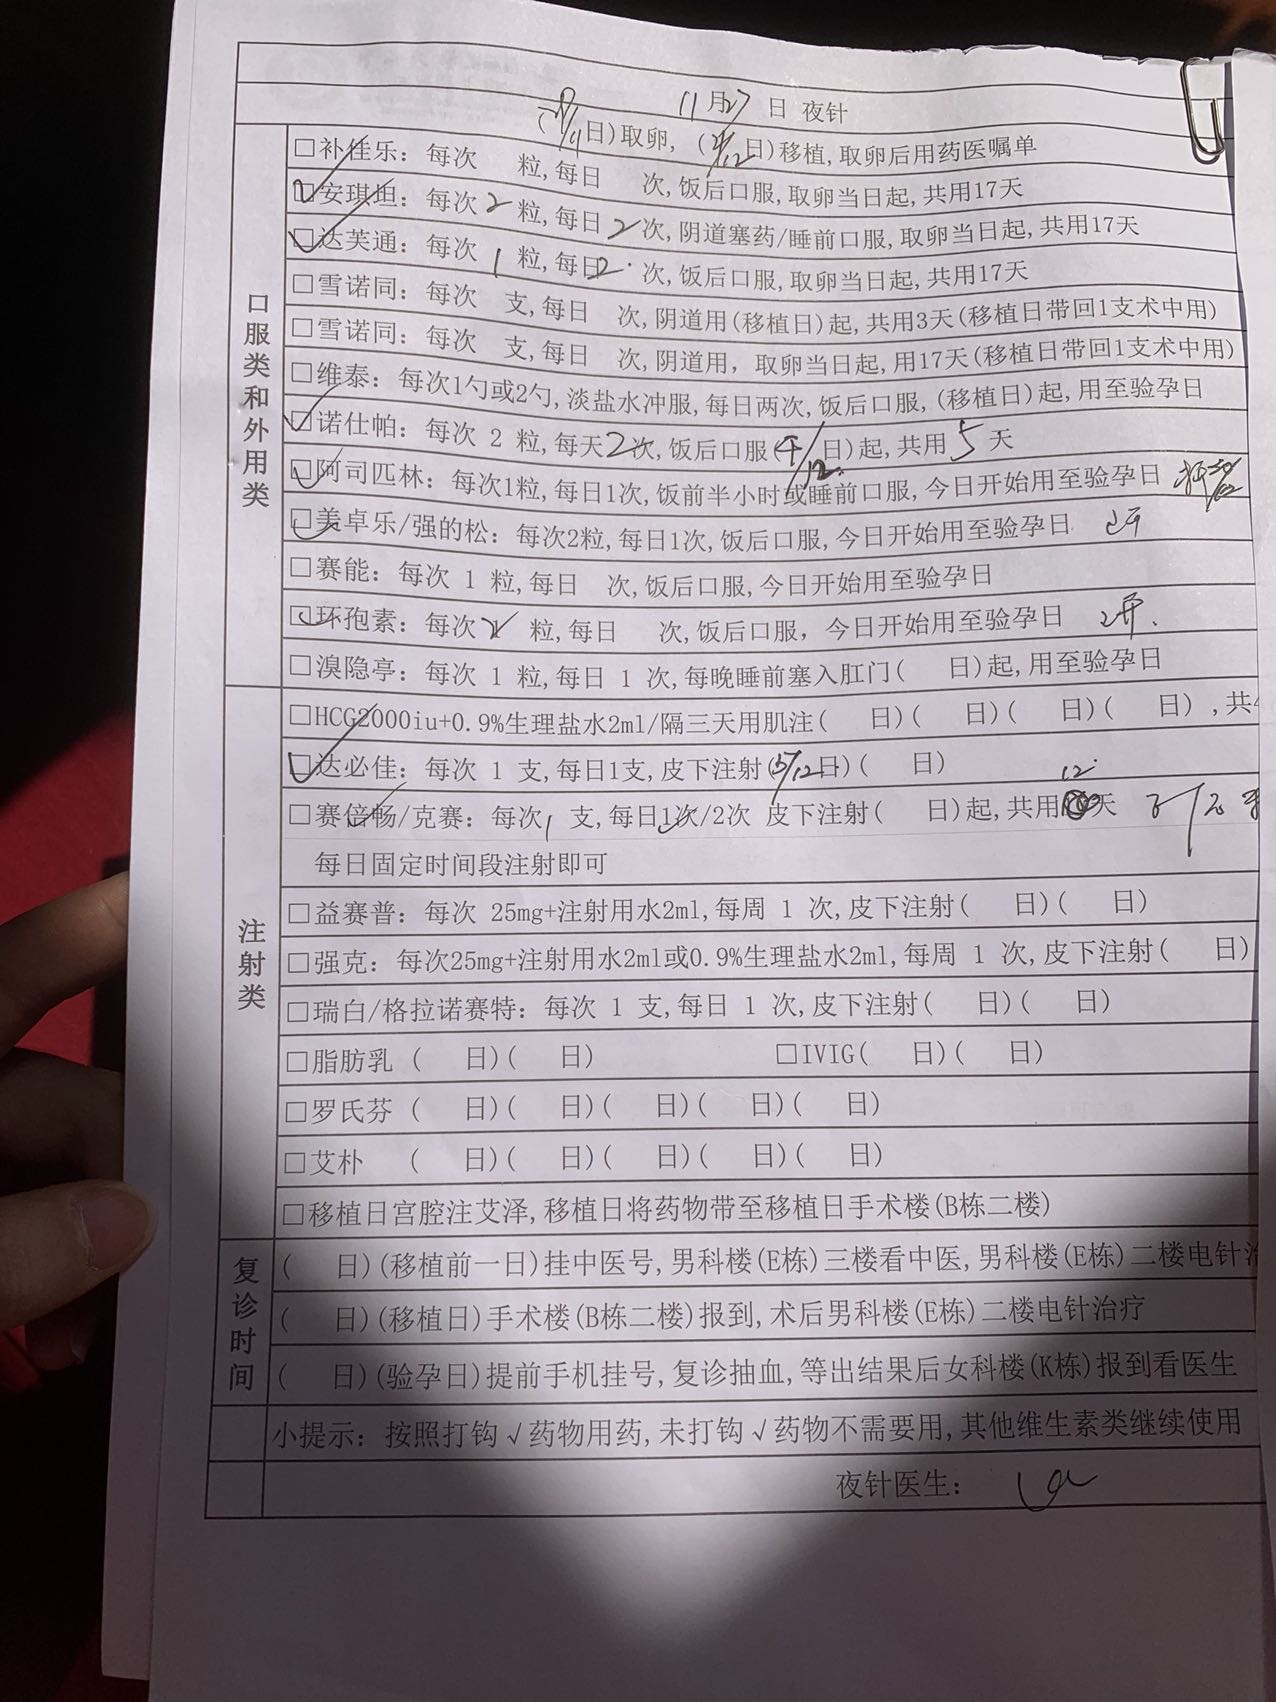 11月27日 夜针
( /11日)取卵, ( /12日)移植,取卵后用药医嘱单
口服类和外用类
□补佳乐: 每次 粒,每日 次,饭后口服,取卵当日起,共用17天
□安琪坦: 每次2粒,每日2次,阴道塞药/睡前口服,取卵当日起,共用17天
□达芙通: 每次1粒,每日2次,饭后口服,取卵当日起,共用17天
□雪诺同: 每次 支,每日 次,阴道用(移植日)起,共用3天(移植日带回1支术中用)
□雪诺同: 每次 支,每日 次,阴道用, 取卵当日起,用17天(移植日带回1支术中用)
□维泰: 每次1勺或2勺,淡盐水冲服,每日两次,饭后口服,(移植日)起,用至验孕日
□诺仕帕: 每次 2 粒,每天2次,饭后口服( /12日)起,共用5天
□阿司匹林: 每次1粒,每日1次,饭前半小时或睡前口服,今日开始用至验孕日
□美卓乐/强的松: 每次2粒,每日1次,饭后口服,今日开始用至验孕日
□赛能: 每次 1 粒,每日 次,饭后口服,今日开始用至验孕日
□环孢素: 每次 粒,每日 次,饭后口服, 今日开始用至验孕日
□溴隐亭: 每次 1 粒,每日 1 次,每晚睡前塞入肛门( 日)起,用至验孕日
注射类
□HCG2000iu+0.9%生理盐水2ml/隔三天用肌注( 日)( 日)( 日)( 日),共
□达必佳: 每次 1 支,每日1支,皮下注射(5/12日)( 日)
□赛倍畅/克赛: 每次1支,每日1次/2次 皮下注射( 日)起,共用12天
每日固定时间段注射即可
□益赛普: 每次 25mg+注射用水2ml,每周 1 次,皮下注射( 日)( 日)
□强克: 每次25mg+注射用水2ml或0.9%生理盐水2ml,每周 1 次,皮下注射( 日)
□瑞白/格拉诺赛特: 每次 1 支,每日 1 次,皮下注射( 日)( 日)
□脂肪乳 ( 日)( 日) □IVIG( 日)( 日)
□罗氏芬 ( 日)( 日)( 日)( 日)( 日)
□艾朴 ( 日)( 日)( 日)( 日)( 日)
□移植日宫腔注艾泽,移植日将药物带至移植日手术楼(B栋二楼)
复诊时间
( 日)(移植前一日)挂中医号,男科楼(E栋)三楼看中医,男科楼(E栋)二楼电针
( 日)(移植日)手术楼(B栋二楼)报到,术后男科楼(E栋)二楼电针治疗
( 日)(验孕日)提前手机挂号,复诊抽血,等出结果后女科楼(K栋)报到看医生
小提示: 按照打钩√药物用药,未打钩√药物不需要用,其他维生素类继续使用
夜针医生: